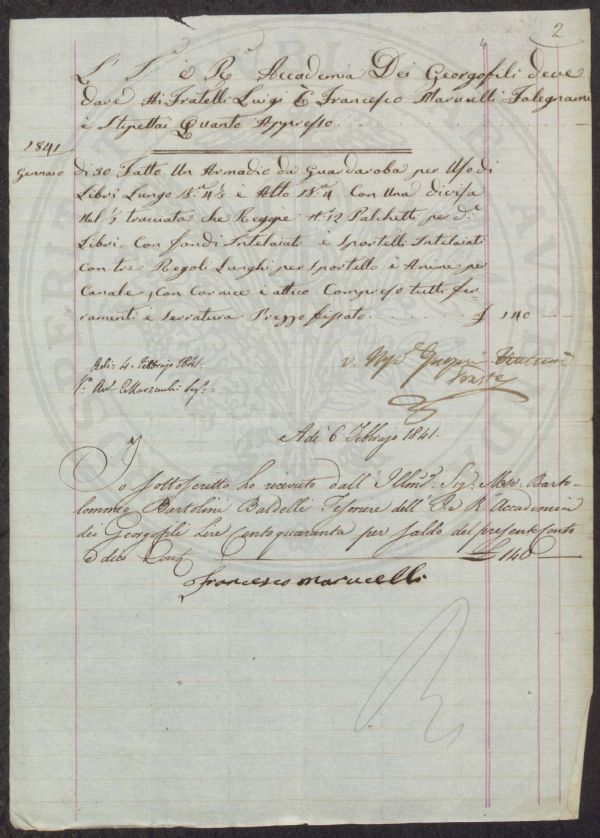 2
L' I.ª è R.ª Accademia Dei Georgofili deve
dare Ai Fratelli Luigi E Francesco Marucelli Falegnami
è Stipettai Quanto Appresso
1841
Gennaio di 30 Fatto Un Armadio da Guardaroba per Uso di
Libri Lungo B.ª 4½ è Alto B.ª 4 Con Una divisa
Nel ½ tracciata che Regge N.º 12 Palchetti per d.ⁱ
Libri. Con fondi Intelaiati è Sportelli Intelaiati
con tre Regoli Lunghi per Sportello è Anime per
Canale, Con Cornice e attico Compreso tutti fer
ramenti e Serratura Prezzo fissato £ 140 —
Adi: 4. Febbrajo 1841.
V.º
A dì 6 Febbrajo 1841.
Io sottoscritto ho ricevuto dall' Illmo. Sig. Marc. Barto-
lommeo Bartolini Baldelli Tesoriere dell' I. e R. Accademia
dei Georgofili Lire Centoquaranta per saldo del presente Conto
e dico Lire £ 140 —
Francesco Marucelli